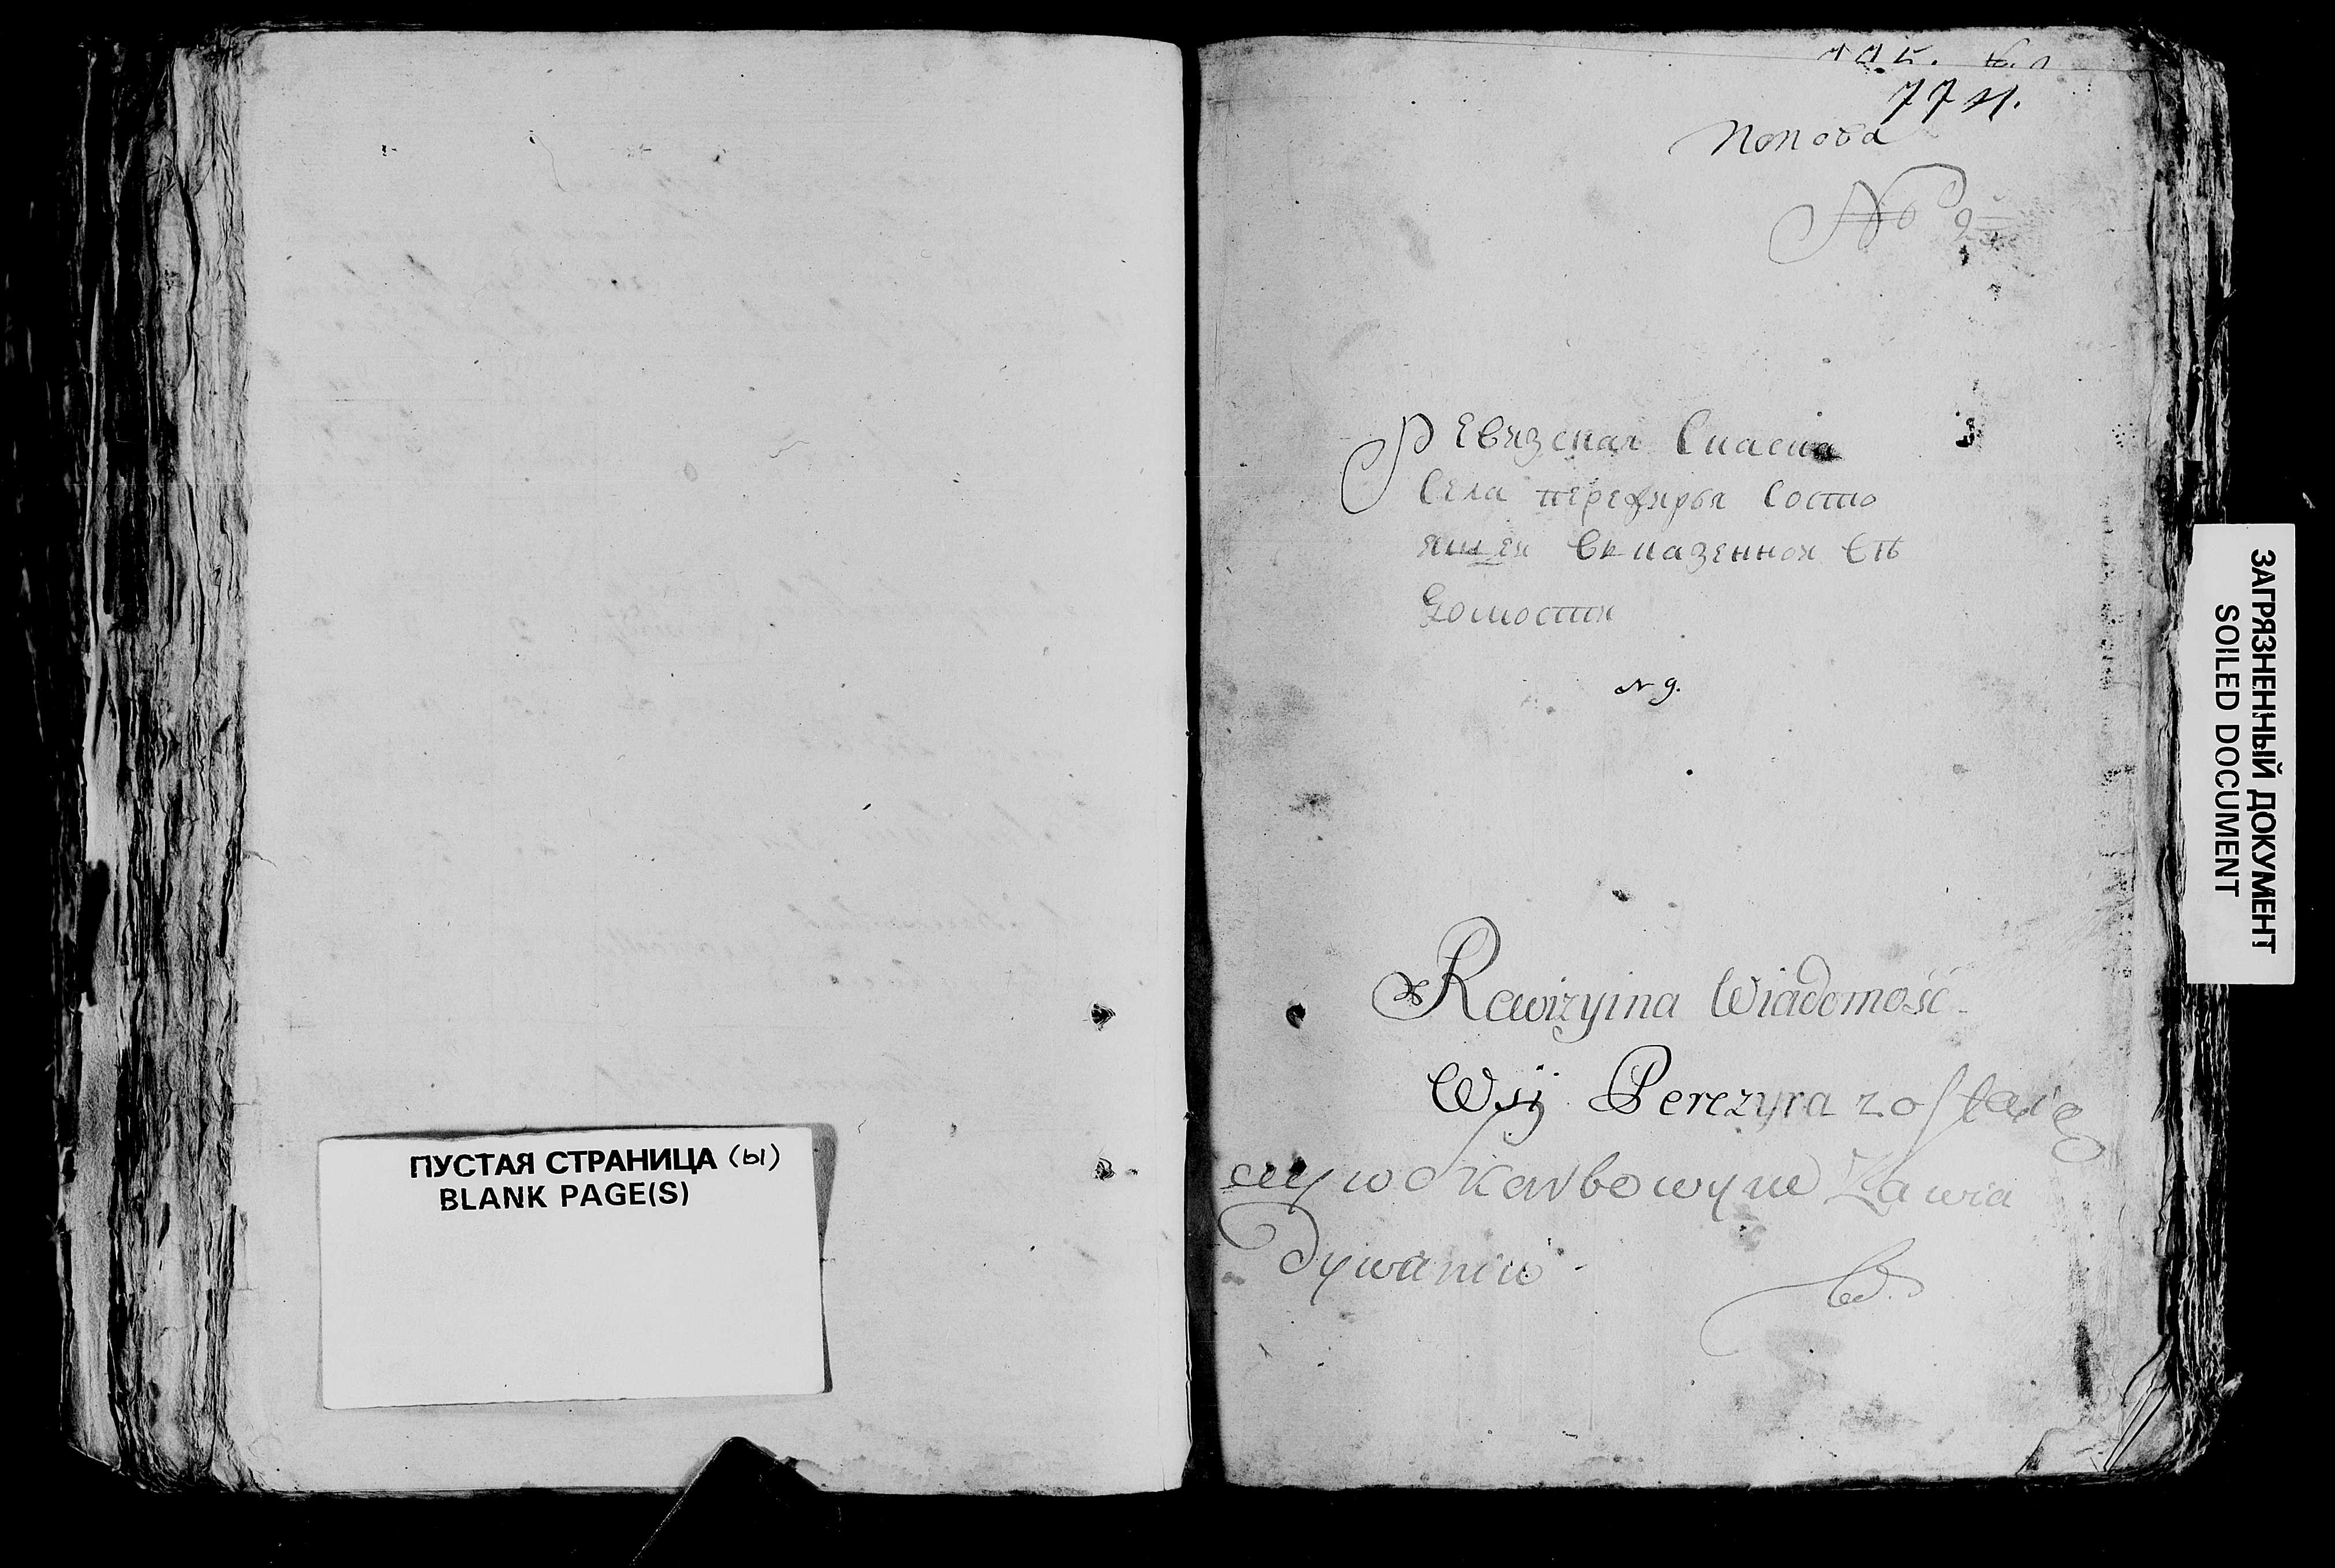 ПУСТАЯ СТРАНИЦА (Ы)
BLANK PAGE(S)
77 л.
Попова
№ 9
Ревизская Скаска
Села перезирья Состо
ящеи Вказеннои Въ
домости
N 9.
Rewizyina Wiadomość
Wsÿ Perezyra zostaią
cey w Skarbowym Zawia
dywaniu
ЗАГРЯЗНЕННЫЙ ДОКУМЕНТ
SOILED DOCUMENT